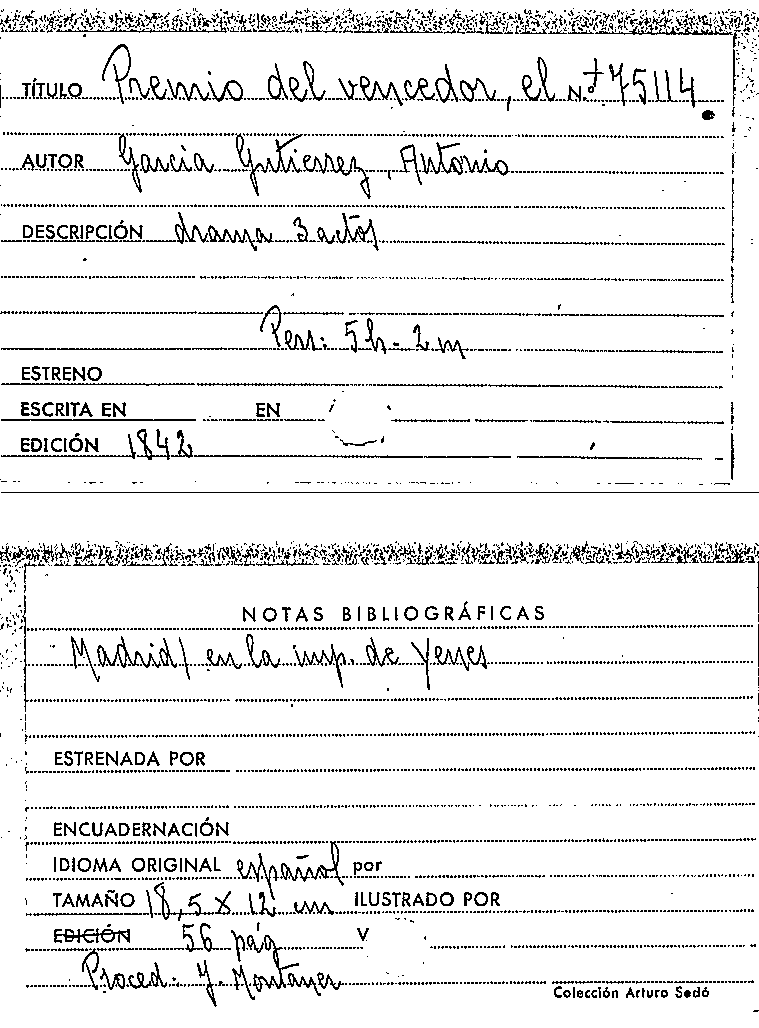 TÍTULO Premio del vencedor, el N.º + 75114
AUTOR García Gutierrez, Antonio
DESCRIPCIÓN drama 3 actos
Pers: 5 h - 2 m
ESTRENO
ESCRITA EN EN
EDICIÓN 1842
NOTAS BIBLIOGRÁFICAS
Madrid / en la imp. de Yenes
ESTRENADA POR
ENCUADERNACIÓN
IDIOMA ORIGINAL español por
TAMAÑO 18,5 X 12 cm ILUSTRADO POR
EDICIÓN 56 pág V
Proced: J. Montaner
Colección Arturo Sedó